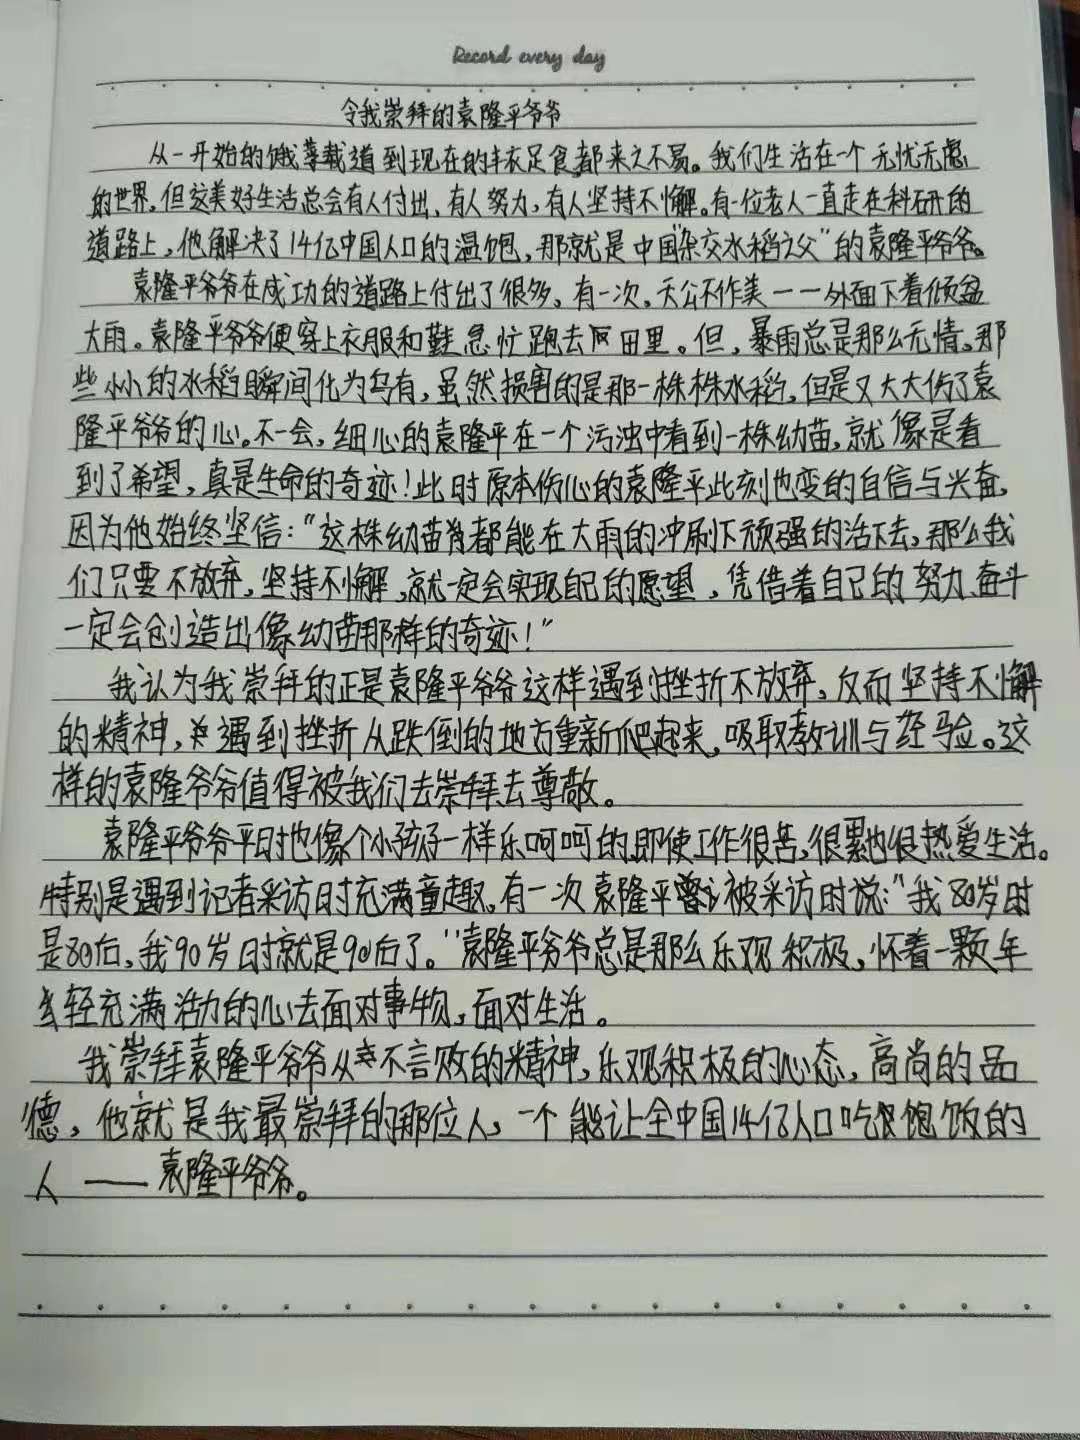 Record every day
令我崇拜的袁隆平爷爷
从一开始的饿莩载道到现在的丰衣足食都来之不易。我们生活在一个无忧无虑
的世界,但这美好生活总会有人付出,有人努力,有人坚持不懈。有一位老人一直走在科研的
道路上,他解决了14亿中国人口的温饱,那就是中国“杂交水稻之父”的袁隆平爷爷。
袁隆平爷爷在成功的道路上付出了很多,有一次,天公不作美——外面下着倾盆
大雨。袁隆平爷爷便穿上衣服和鞋急忙跑去田里。但,暴雨总是那么无情,那
些小小的水稻瞬间化为乌有,虽然损害的是那一株株水稻,但是又大大伤了袁
隆平爷爷的心。不一会,细心的袁隆平在一个污浊中看到一株幼苗,就像是看
到了希望,真是生命的奇迹!此时原本伤心的袁隆平此刻也变的自信与兴奋,
因为他始终坚信:“这株幼苗都能在大雨的冲刷下顽强的活下去,那么我
们只要不放弃,坚持不懈,就一定会实现自己的愿望,凭借着自己的努力、奋斗
一定会创造出像幼苗那样的奇迹!”
我认为我崇拜的正是袁隆平爷爷这样遇到挫折不放弃,反而坚持不懈
的精神,遇到挫折从跌倒的地方重新爬起来,吸取教训与经验。这
样的袁隆爷爷值得被我们去崇拜去尊敬。
袁隆平爷爷平时也像个小孩子一样乐呵呵的,即使工作很苦,很累,也很热爱生活。
特别是遇到记者采访时充满童趣,有一次袁隆平被采访时说:“我80岁时
是80后,我90岁时就是90后了。”袁隆平爷爷总是那么乐观积极,怀着一颗年
轻充满活力的心去面对事物,面对生活。
我崇拜袁隆平爷爷从不言败的精神,乐观积极的心态,高尚的品
德,他就是我最崇拜的那位人,一个能让全中国14亿人口吃饱饭的
人——袁隆平爷爷。